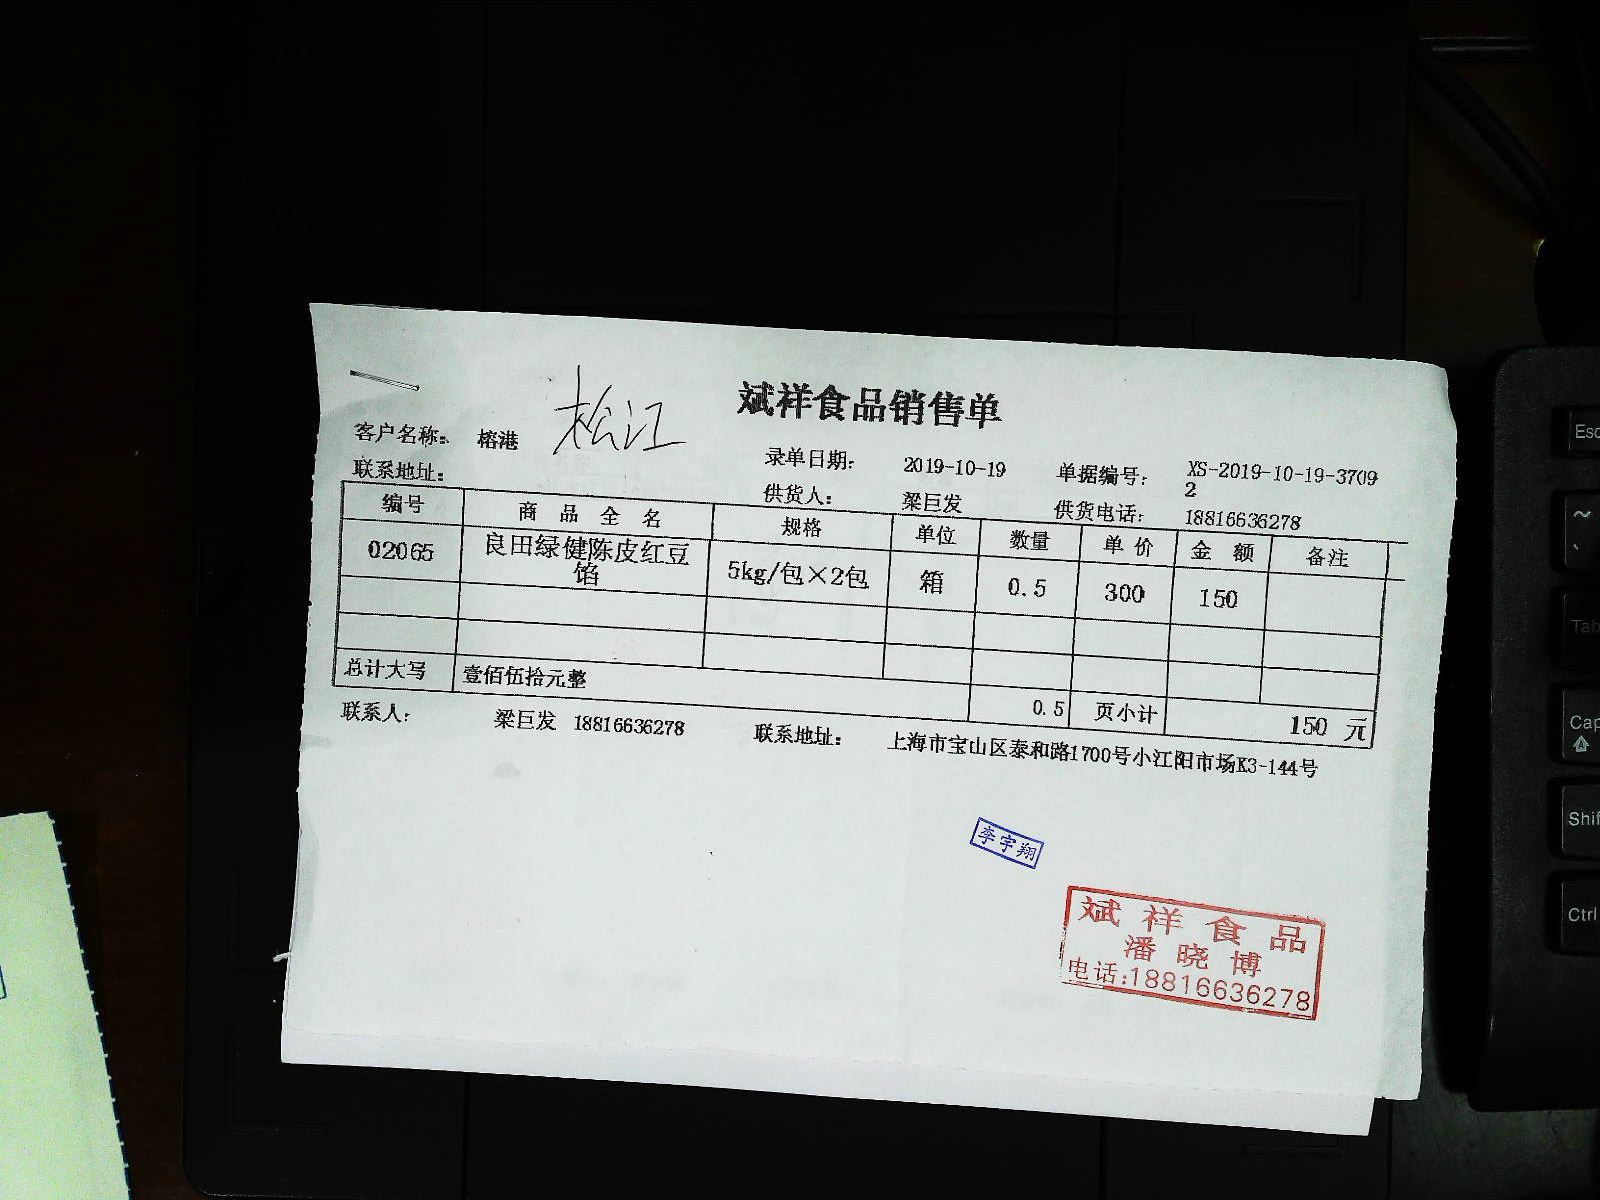 斌祥食品销售单
客户名称: 榕港 松江
录单日期: 2019-10-19 单据编号: XS-2019-10-19-3709
2
联系地址:
供货人: 梁巨发 供货电话: 18816636278
编号 商 品 全 名 规格 单位 数量 单 价 金 额 备注
02065 良田绿健陈皮红豆
馅 5kg/包×2包 箱 0.5 300 150
总计大写 壹佰伍拾元整 0.5 页小计 150 元
联系人: 梁巨发 18816636278 联系地址: 上海市宝山区泰和路1700号小江阳市场K3-144号
李宇翔
斌祥食品
潘晓博
电话:18816636278
Esc
~
、
Tab
Cap
Shif
Ctrl